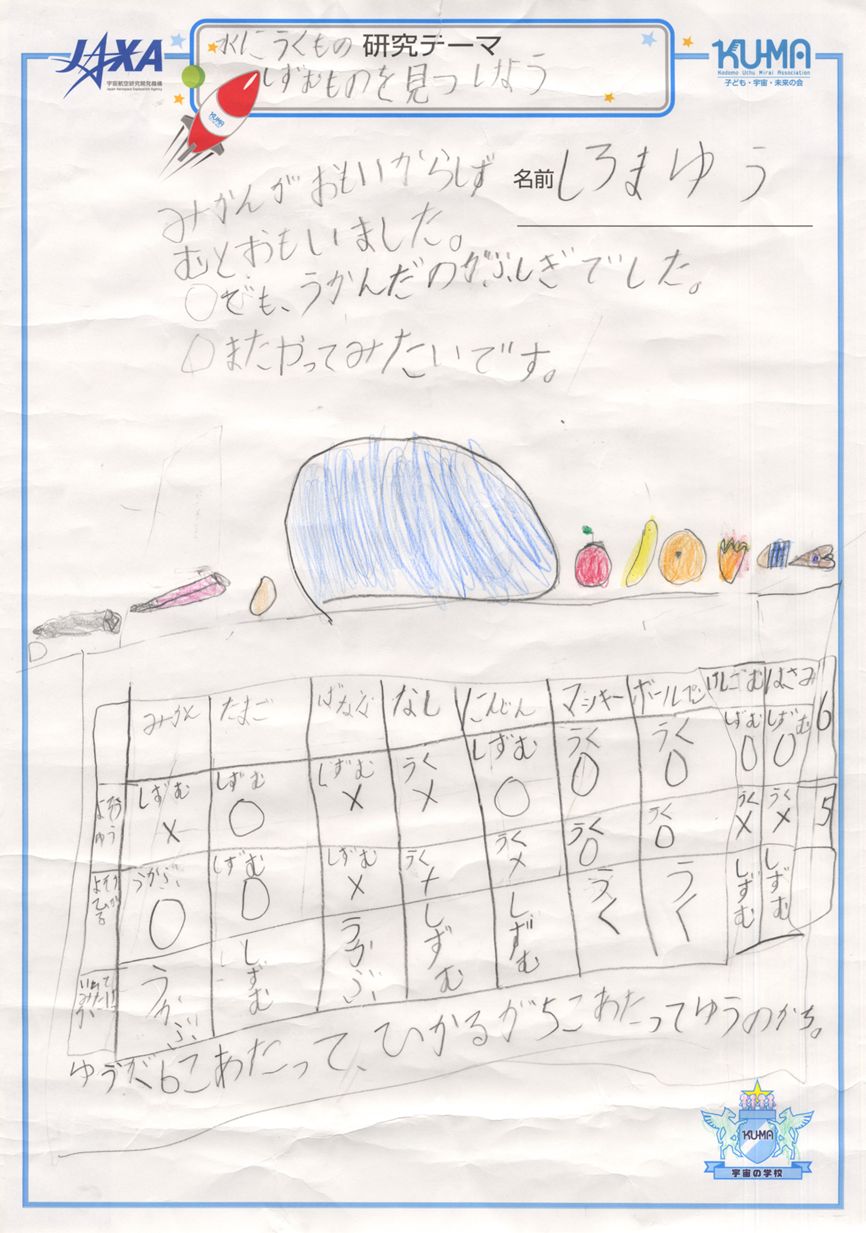 JAXA
宇宙航空研究開発機構
Japan Aerospace Exploration Agency
水にうくもの 研究テーマ
しずむものを見つしなう
KU-MA
Kodomo Uchu Mirai Association
子ども・宇宙・未来の会
KU-MA
名前 しろまゆう
みかんがおもいからしず
むとおもいました。
○でも、うかんだのがふしぎでした。
○またやってみたいです。
みかん たまご ばなな なし にんじん マッキー ボールペン けしごむ はさみ 6
よそう ゆう しずむ × しずむ ○ しずむ × うく × しずむ ○ うく ○ うく ○ しずむ ○ しずむ ○
よそう ひかる うかぶ ○ しずむ ○ しずむ × うく × うく × うく ○ うく ○ うく × うく × 5
うかぶ しずむ うかぶ しずむ しずむ うく うく しずむ しずむ
ゆうが、6こあたって、ひかるが5こあたってゆうのかち。
KU-MA
宇宙の学校